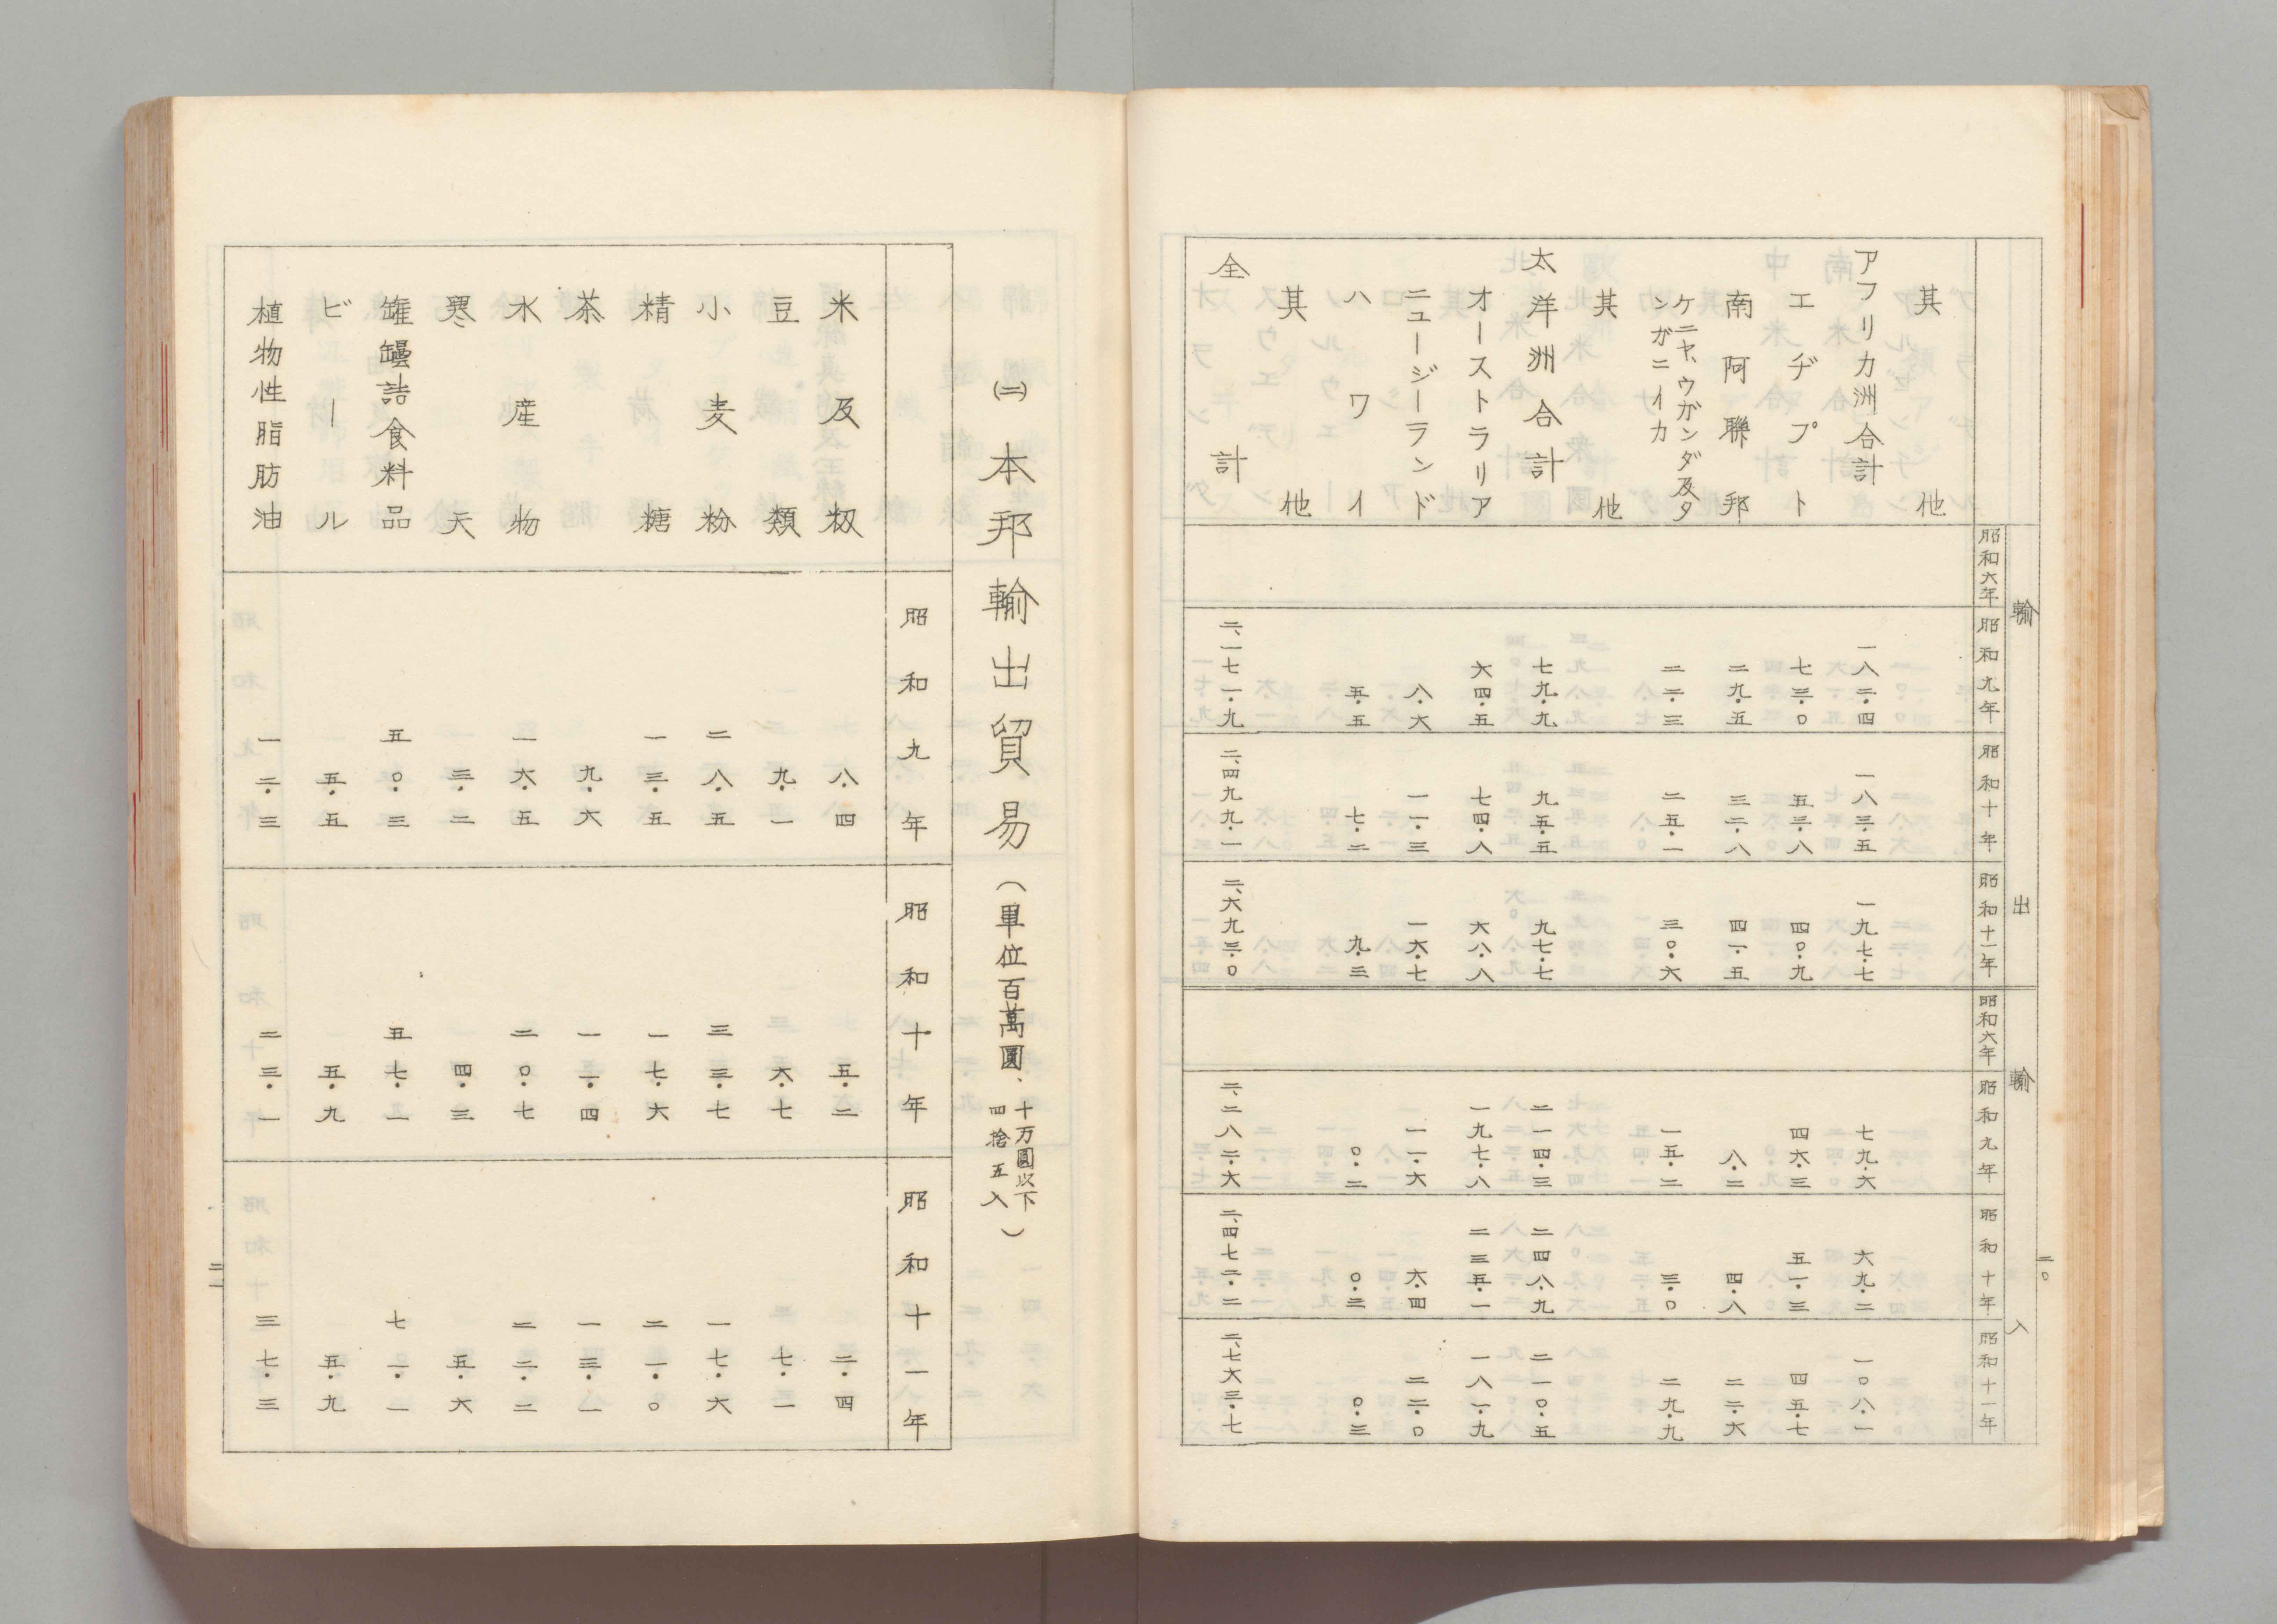 二〇
輸出 輸入
昭和六年 昭和九年 昭和十年 昭和十一年 昭和六年 昭和九年 昭和十年 昭和十一年
其他
アフリカ洲合計 一八二・四 一八三・五 一九七・七 七九・六 六九・二 一〇八・一
エヂプト 七三・〇 五三・八 四〇・九 四六・三 五一・三 四五・七
南阿聯邦 二九・五 三二・八 四一・五 八・二 四・八 二二・六
ケニヤ、ウガンダ及タ
ンガニイカ 二二・三 二五・一 三〇・六 一五・二 三・〇 二九・九
其他
太洋洲合計 七九・九 九五・五 九七・七 二一四・三 二四八・九 二一〇・五
オーストラリア 六四・五 七四・八 六八・八 一九七・八 二三五・一 一八一・九
ニュージーランド 八・六 一一・三 一六・七 一一・六 六・四 二二・〇
ハワイ 五・五 七・二 九・三 〇・二 〇・三 〇・三
其他
全計 二、一七一・九 二、四九九・一 二、六九三・〇 二、二八二・六 二、四七二・二 二、七六三・七
㈡本邦輸出貿易（單位百萬圓、十万圓以下
四捨五入）
昭和九年 昭和十年 昭和十一年
米及籾 八・四 五・二 二・四
豆類 九・一 六・七 七・一
小麦粉 二八・五 三三・七 一七・六
精糖 一三・五 一七・六 二一・〇
茶 九・六 一一・四 一三・一
水産物 一六・五 二〇・七 二二・二
寒天 三・二 四・三 五・六
罐罎詰食料品 五〇・三 五七・一 七一・一
ビール 五・五 五・九 五・九
植物性脂肪油 一二・三 二三・一 三七・三
二一